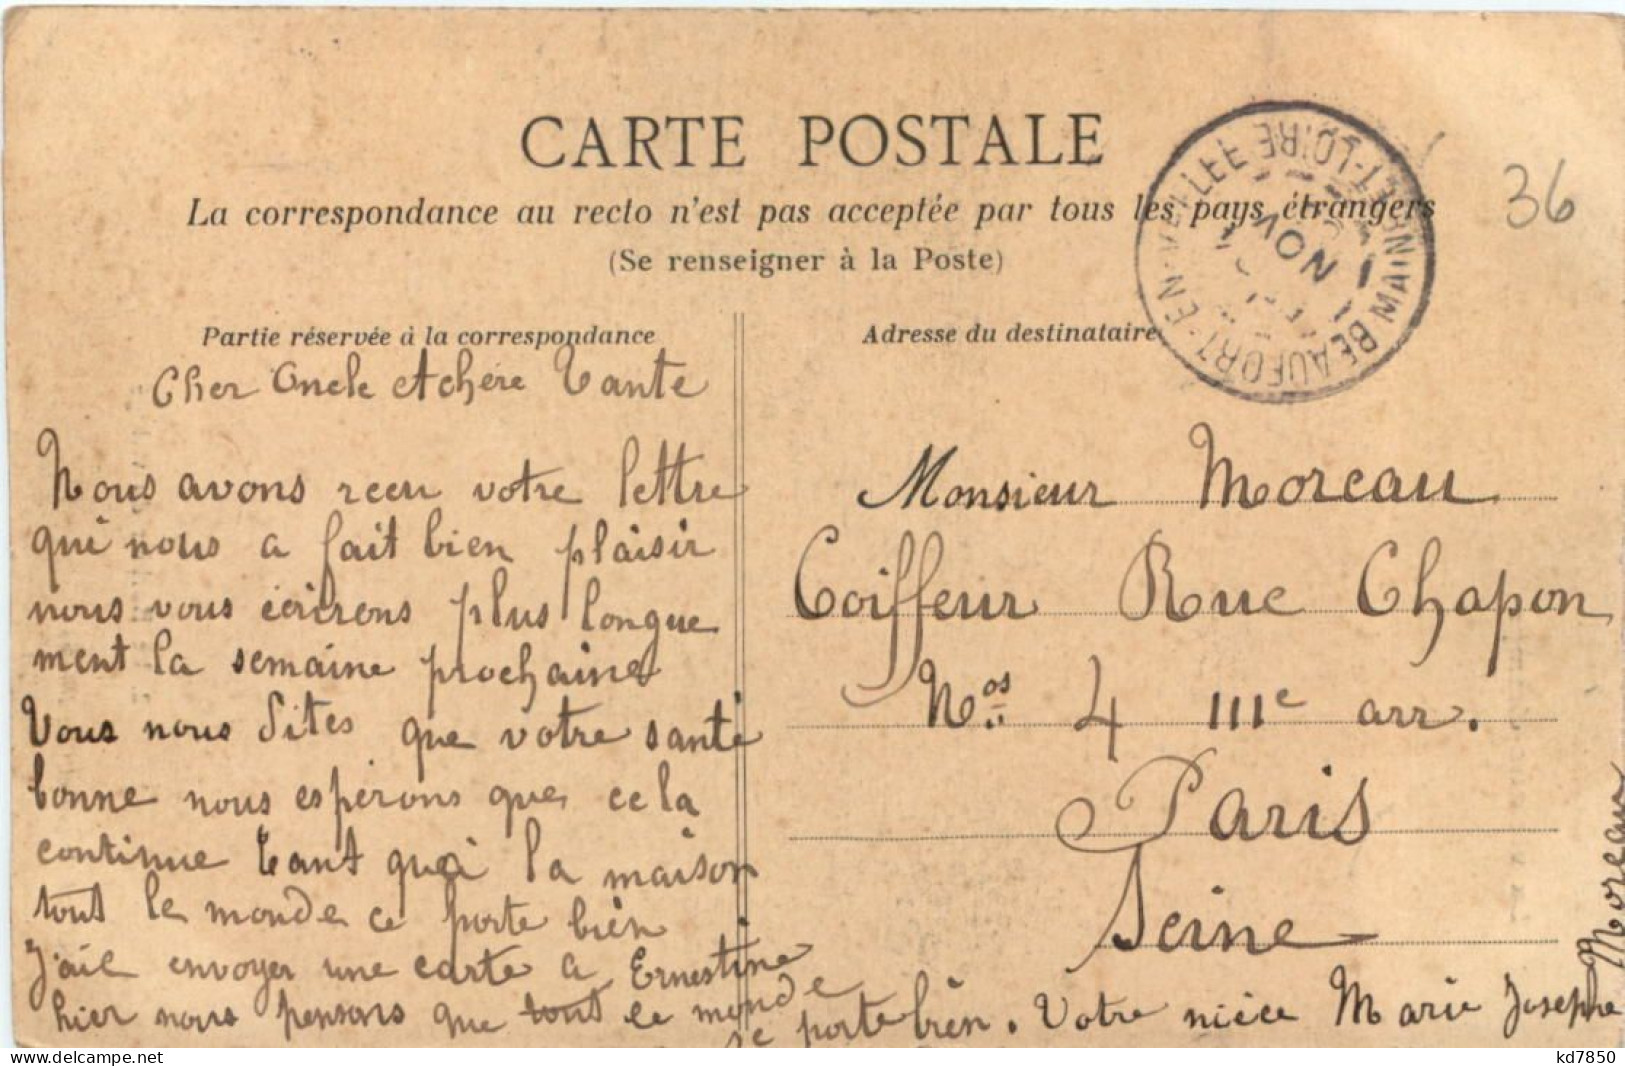 CARTE POSTALE
La correspondance au recto n'est pas acceptée par tous les pays étrangers
(Se renseigner à la Poste)
36
BEAUFORT-EN-VALLÉE MAINE-ET-LOIRE
NOV
Partie réservée à la correspondance
Cher Oncle et Chère Tante
Nous avons recu votre lettre
qui nous a fait bien plaisir
nous vous écrirons plus longue
ment la semaine prochaine
Vous nous dites que votre santé
bonne nous espérons que cela
continue tant qu'à la maison
tout le monde ce porte bien
J'ai envoyer une carte a Ernestine
hier nous pensons que tout le monde
se porte bien. Votre nièce Marie Josephe
Moreau
Adresse du destinataire
Monsieur Moreau
Coiffeur Rue Chapon
Nos 4 IIIe arr.
Paris
Seine
delcampe.net
kd7850